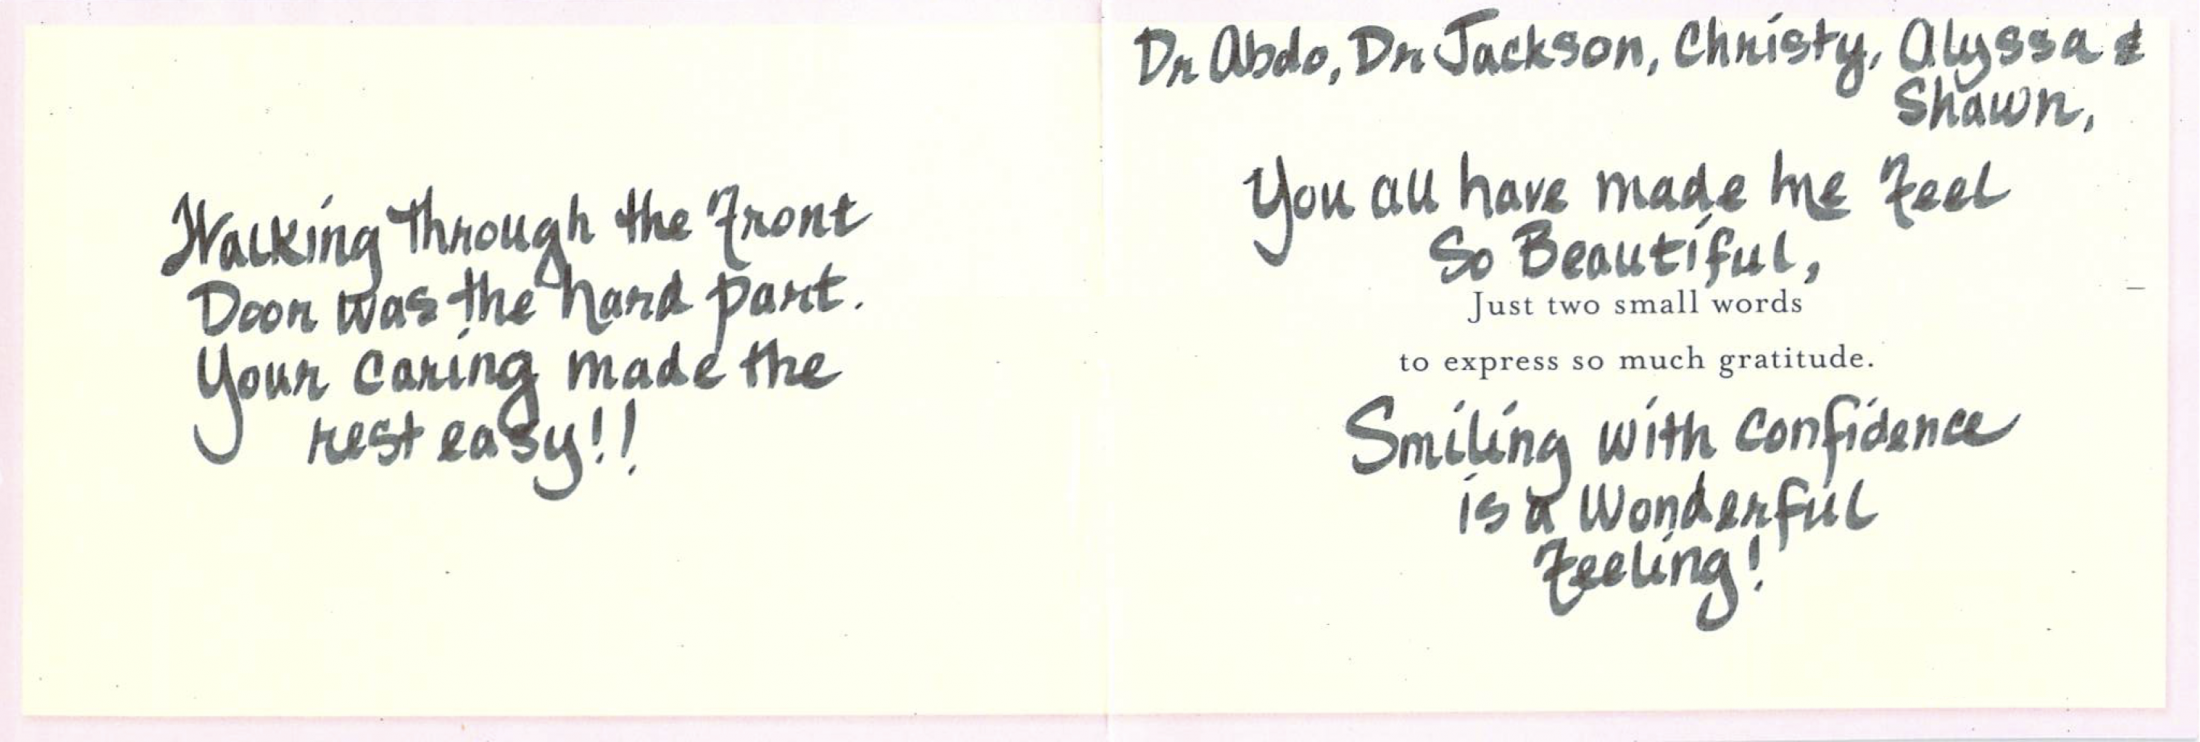 Walking Through the Front
Door was the hard part.
Your caring made the
rest easy!!
Dr Abdo, Dr Jackson, Christy, Alyssa &
Shawn,
You all have made me feel
So Beautiful,
Just two small words
to express so much gratitude.
Smiling with confidence
is a Wonderful
Feeling!